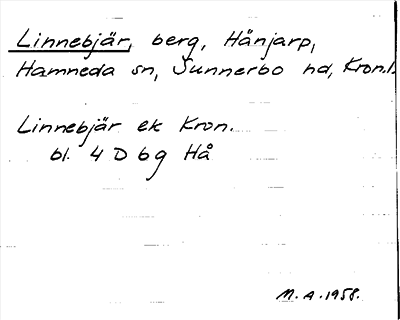 Linnebjär, berg, Hånjarp,
Hamneda sn, Sunnerbo hd, Kron.l.
Linnebjär ek Kron.
bl. 4 D b g Hå
M.A. 1958.